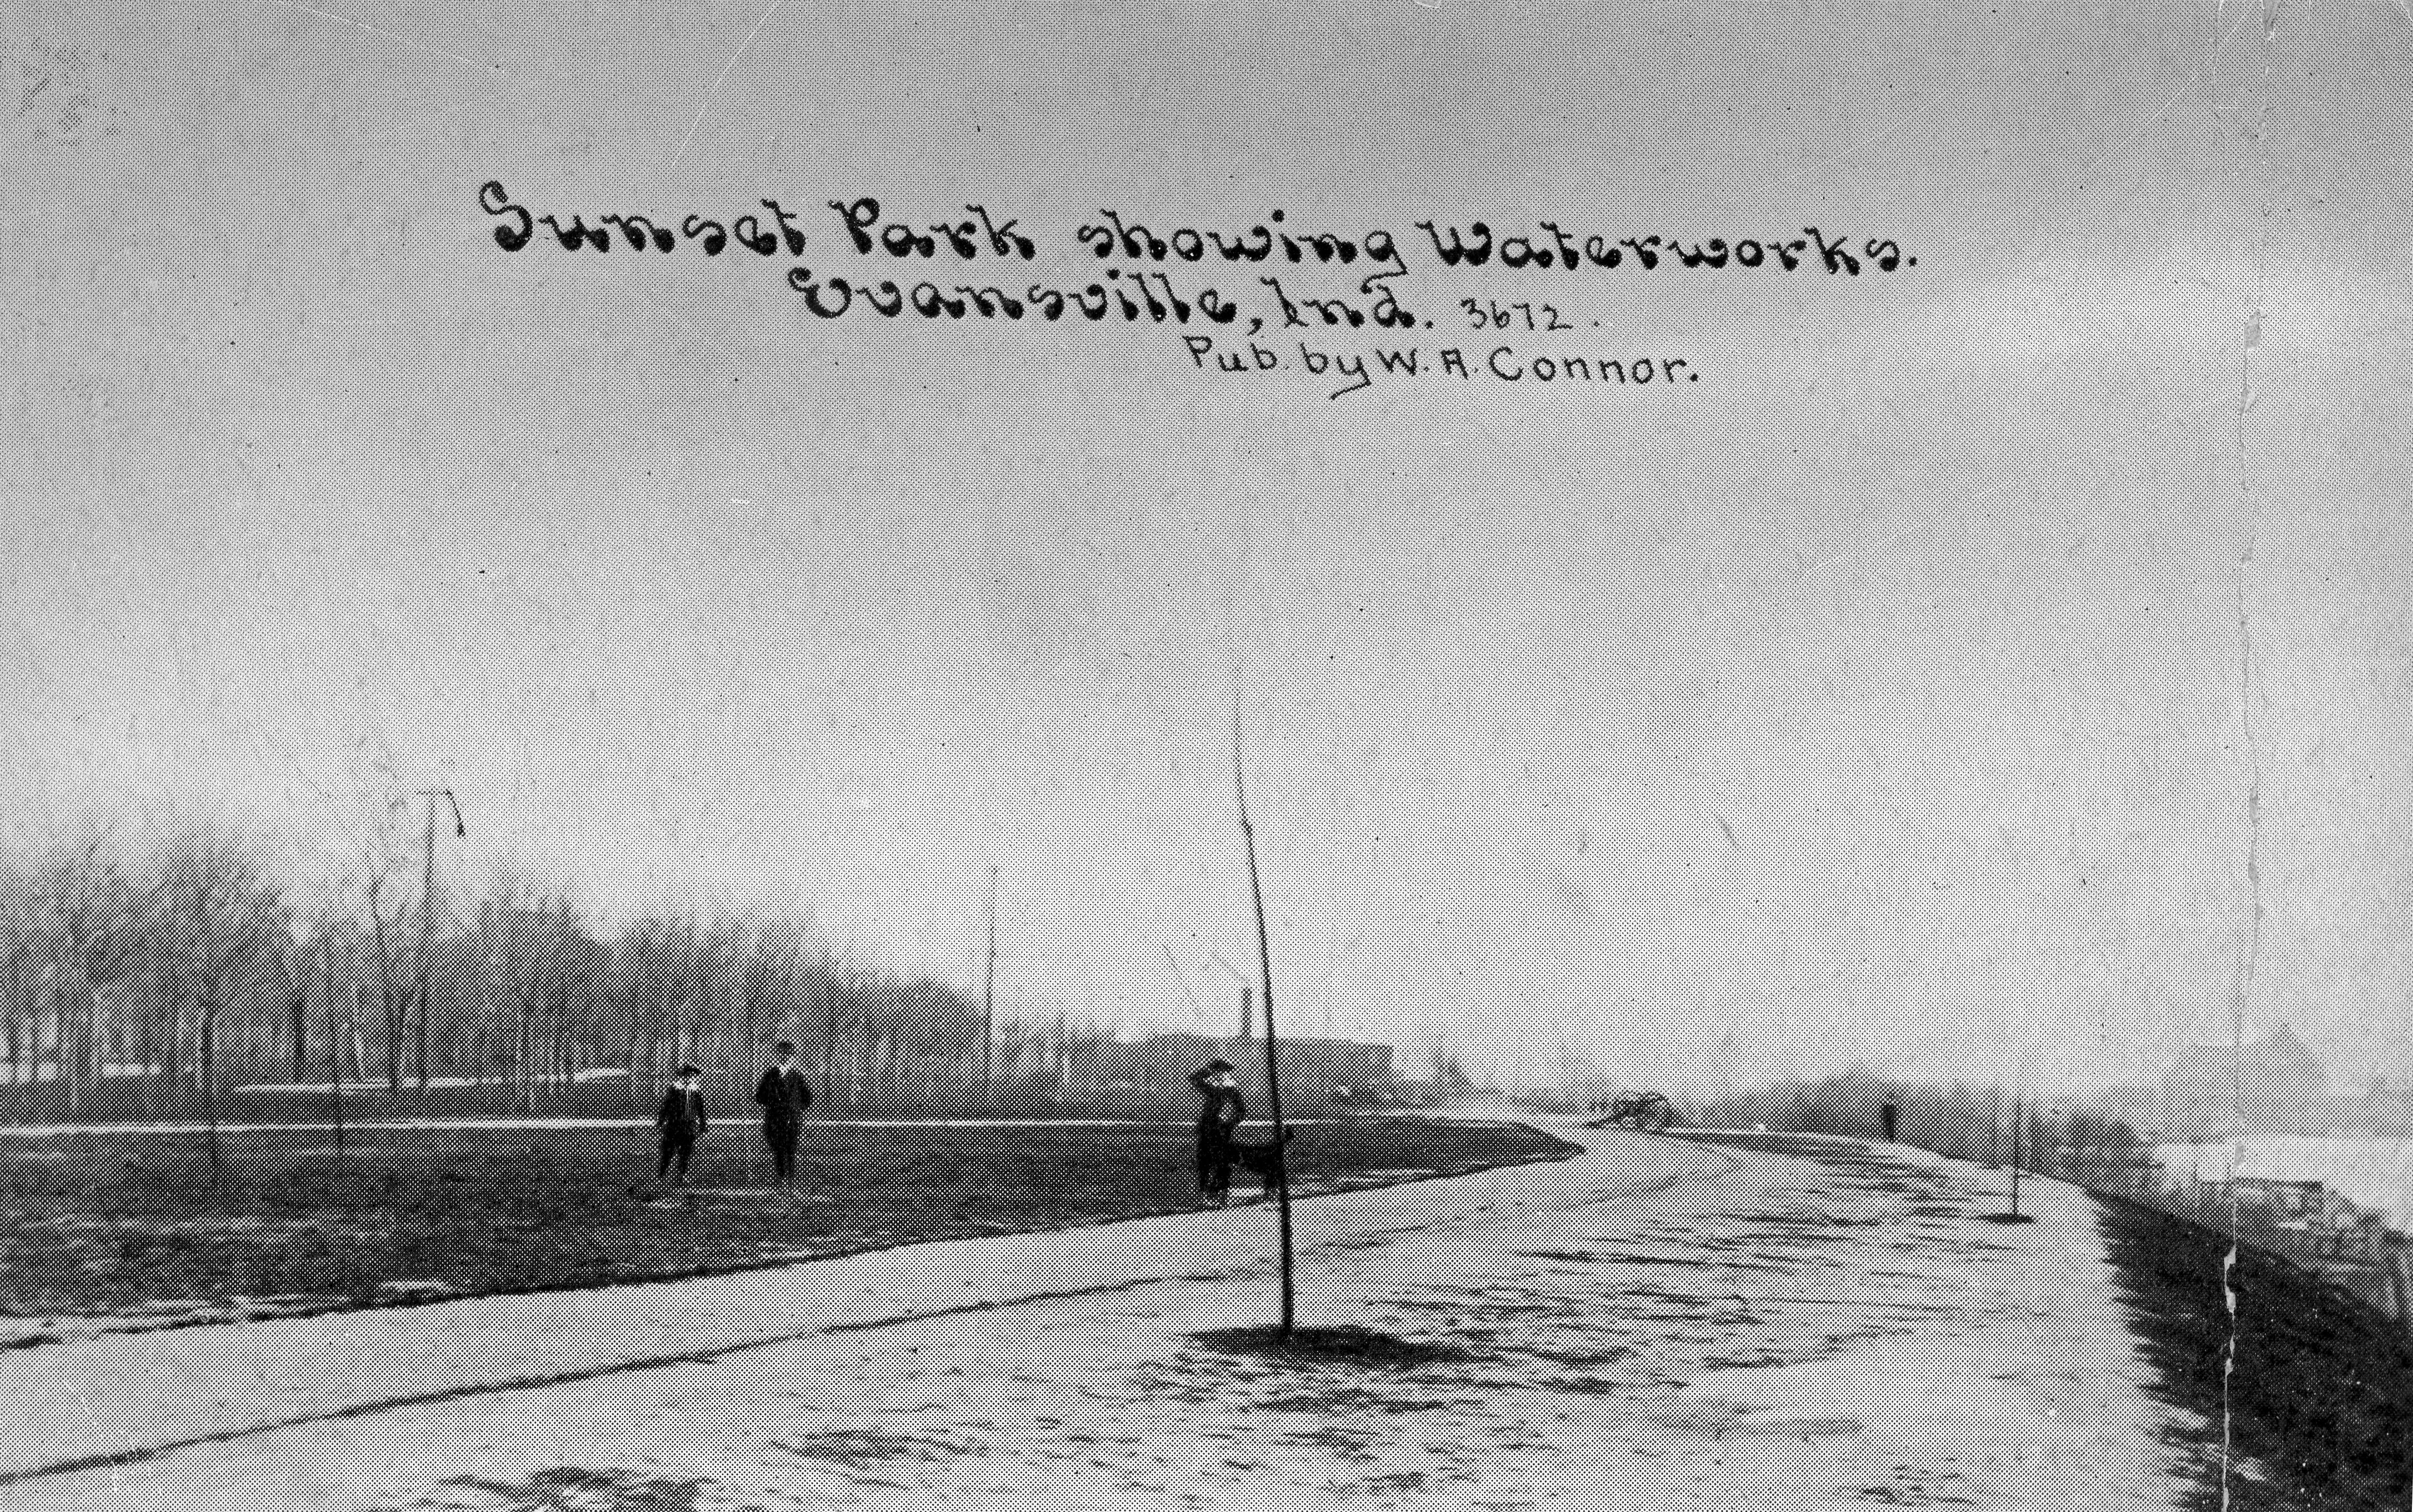 Sunset Park showing Waterworks.
Evansville, Ind. 3672.
Pub. by W. A. Connor.